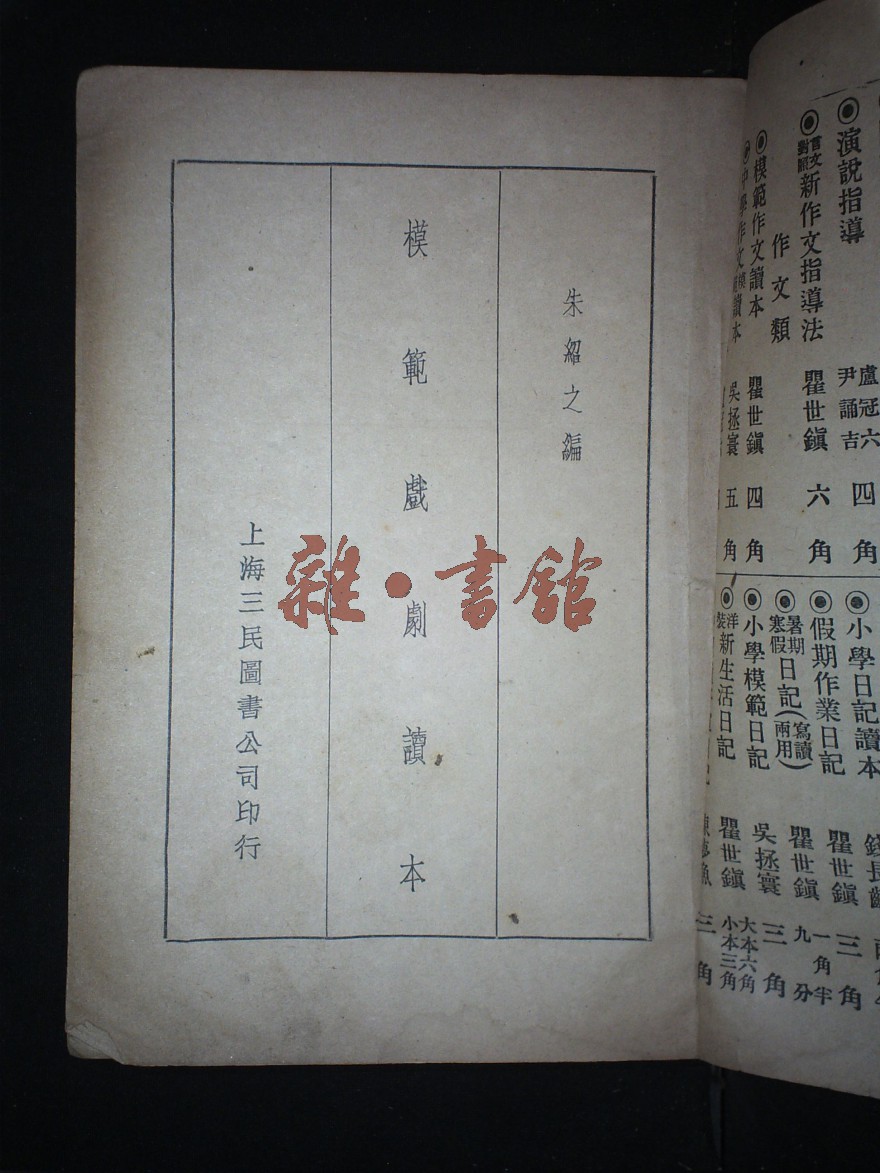 朱紹之編
模範戲劇讀本
上海三民圖書公司印行
雜·書館
◉演說指導 盧冠六 尹誦吉 四角
◉言文對照新作文指導法 瞿世鎮 六角
作文類
◉模範作文讀本 瞿世鎮 四角
中學作文模範讀本 吳拯寰 五角
◉小學日記讀本
◉假期作業日記 瞿世鎮 三角
◉暑期寒假日記(寫讀兩用) 瞿世鎮 一角半 九分
◉小學模範日記 吳拯寰 三角
◉洋裝新生活日記 瞿世鎮 大本六角 小本三角
三角